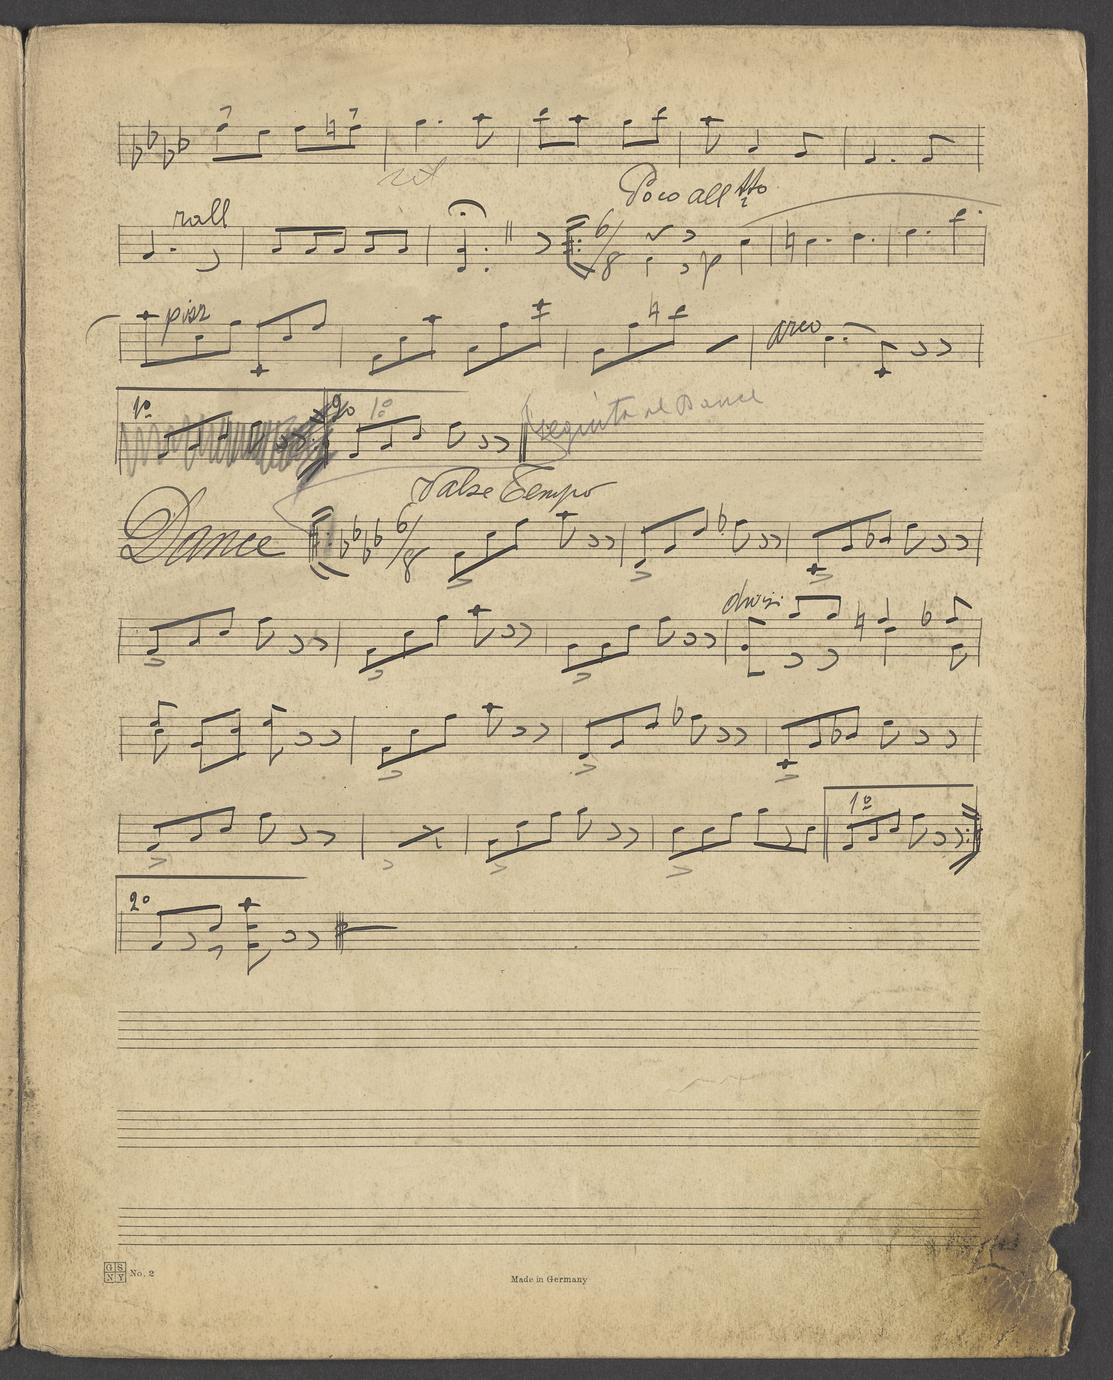 rit
Poco all tto
rall
6/8
pizz
arco
1º
2º 1º
seguita al Dance
Valse Tempo
Dance
6/8
divisi
1º
2º
GS
NY
No. 2
Made in Germany